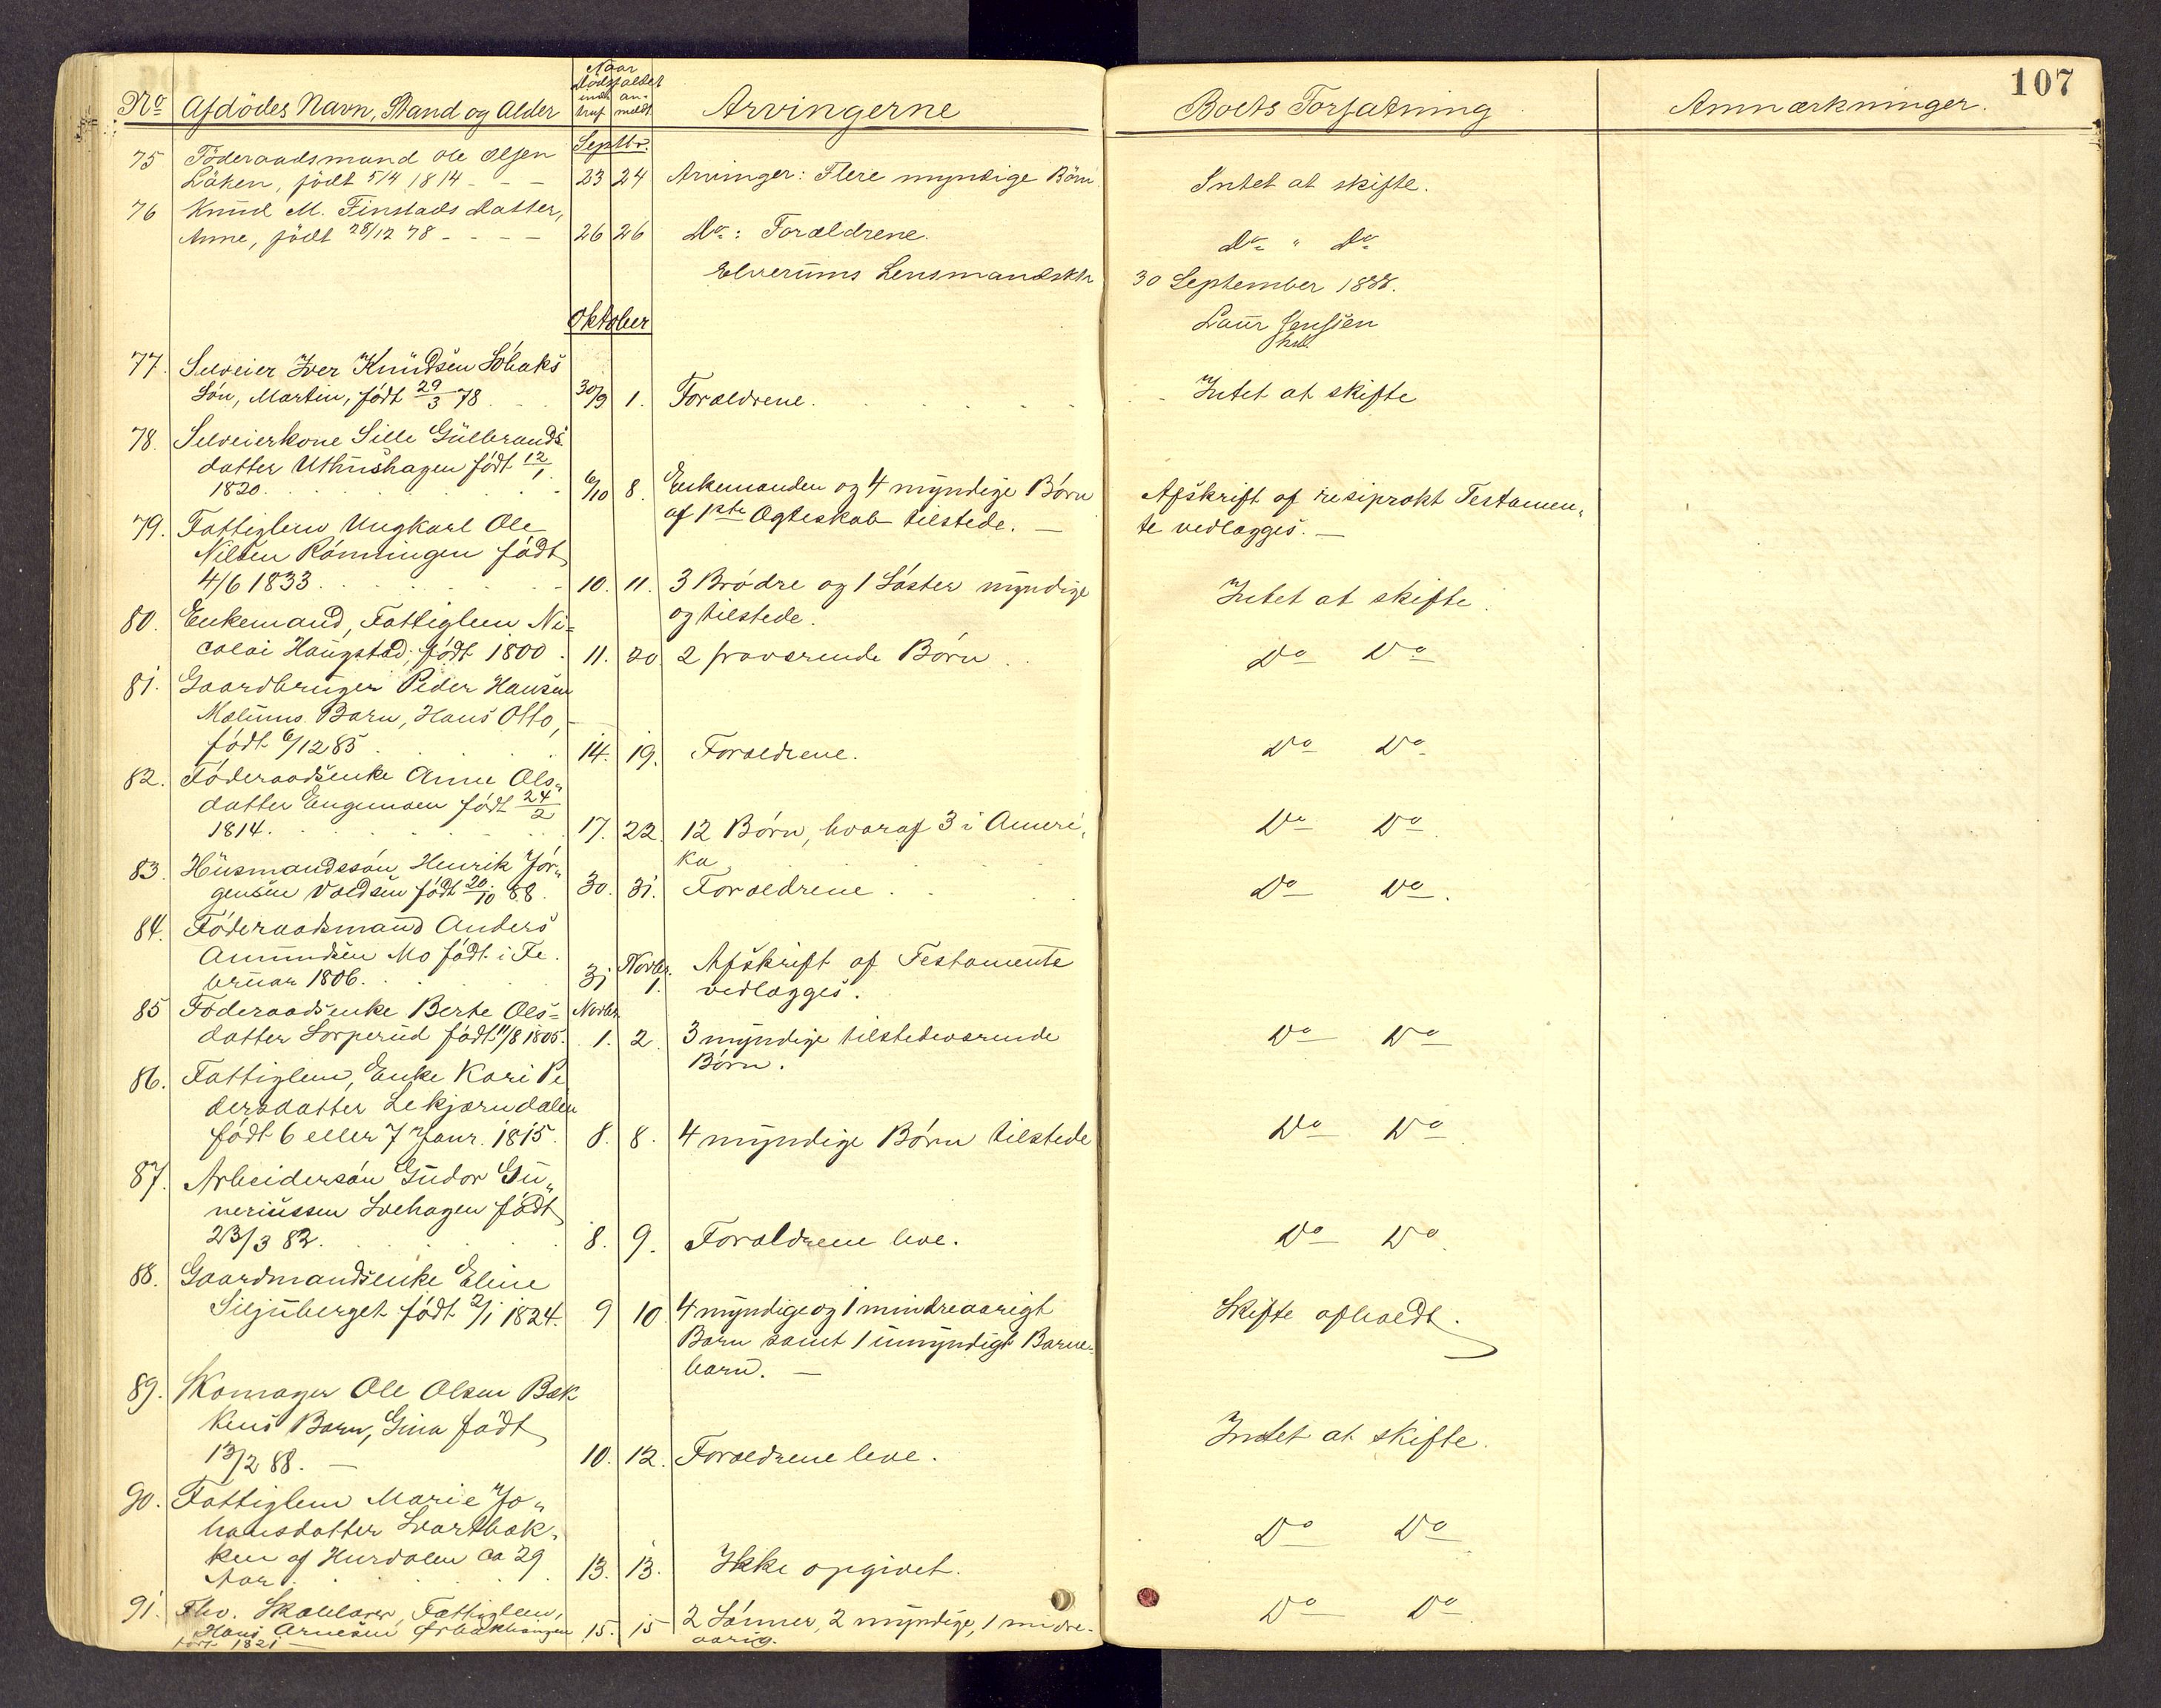 107
No Afdödes Navn, Stand og Alder Naar Dödsfaldet indtraf anmeldt Arvingerne Boets Forfatning Anmærkninger.
Septbr.
75 Föderaadsmand Ole Olsen
Låken, födt 5/4 1814 - - - 23 24 Arvinger: Flere myndige Börn. Intet at skifte.
76 Knud M. Finstads Datter,
Anne, födt 28/12 78 - - - - 26 26 Do: Forældrene. Do " Do
Elverums Lensmandsktr 30 September 1888.
Laur Jenssen
Oktober
77. Selveier Iver Knudsen Löbaks
Sön, Martin, födt 29/3 78 30/9 1. Forældrene. Intet at skifte
78. Selveierkone Sille Gulbrands
datter Uthushagen födt 12/1
1820. 6/10 8. Enkemanden og 4 myndige Börn Afskrift af resiprokt Testamen„
af 1ste Ægteskab tilstede. — te vedlægges. —
79. Fattiglem Ungkarl Ole
Nilsen Rönningen födt
4/6 1833. 10. 11. 3 Brödre og 1 Söster myndige Intet at skifte.
og tilstede.
80. Enkemand, Fattiglem Ni=
colai Haugstad, födt 1800. 11. 20. 2 fraværende Börn .. Do Do
81. Gaardbruger Peder Hansen
Mælums Barn, Hans Otto,
födt 6/12 85 14. 19. Forældrene. Do Do
82. Föderaadsenke Anne Ols„
datter Engemoen födt 24/2
1814. 17. 22. 12 Börn, hvoraf 3 i Ameri„ Do Do
ka
83. Husmandssön Henrik Jör„
gensen Voldsen födt 20/10 88. 30. 31. Forældrene. Do Do.
84. Föderaadsmand Anders
Amundsen Mo födt i Fe.
bruar 1806. 31 Novbr. 1. Afskrift af Testamente
vedlægges.
85 Föderaadsenke Berte Ols= Novbr.
datter Sorperud födt 11/8 1805. 1. 2. 3 myndige tilstedeværende Do Do
Börn.
86. Fattiglem, Enke Kari Pe
dersdatter Lekjærndalen
födt 6 eller 7 Janr. 1815. 8. 8. 4 myndige Börn tilstede Do Do
87. Arbeidersön Gudor Gu„
neriussen Svehagen födt
23/3 82. 8. 9. Forældrene leve. Do Do
88. Gaardmandsenke Eline
Siljuberget födt 2/1 1824. 9 10. 4 myndige og 1 mindreaarigt Skifte afholdt.
Barn samt 1 umyndigt Barne=
barn. —
89. Skomager Ole Olsen Bæk
kens Barn, Gina födt
13/2 88. — 10. 12. Forældrene leve. Intet at skifte.
90. Fattiglem Marie Jo„
hansdatter Svartbæk„
ken af Hurdalen ca 29
Aar. 13. 13. Ikke opgivet. Do Do
91. Fhv. Skolelærer, Fattiglem,
Hans Arnesen 15. 15 2 Sönner, 2 myndige, 1 mindre- Do Do
födt 1821 — aarig.